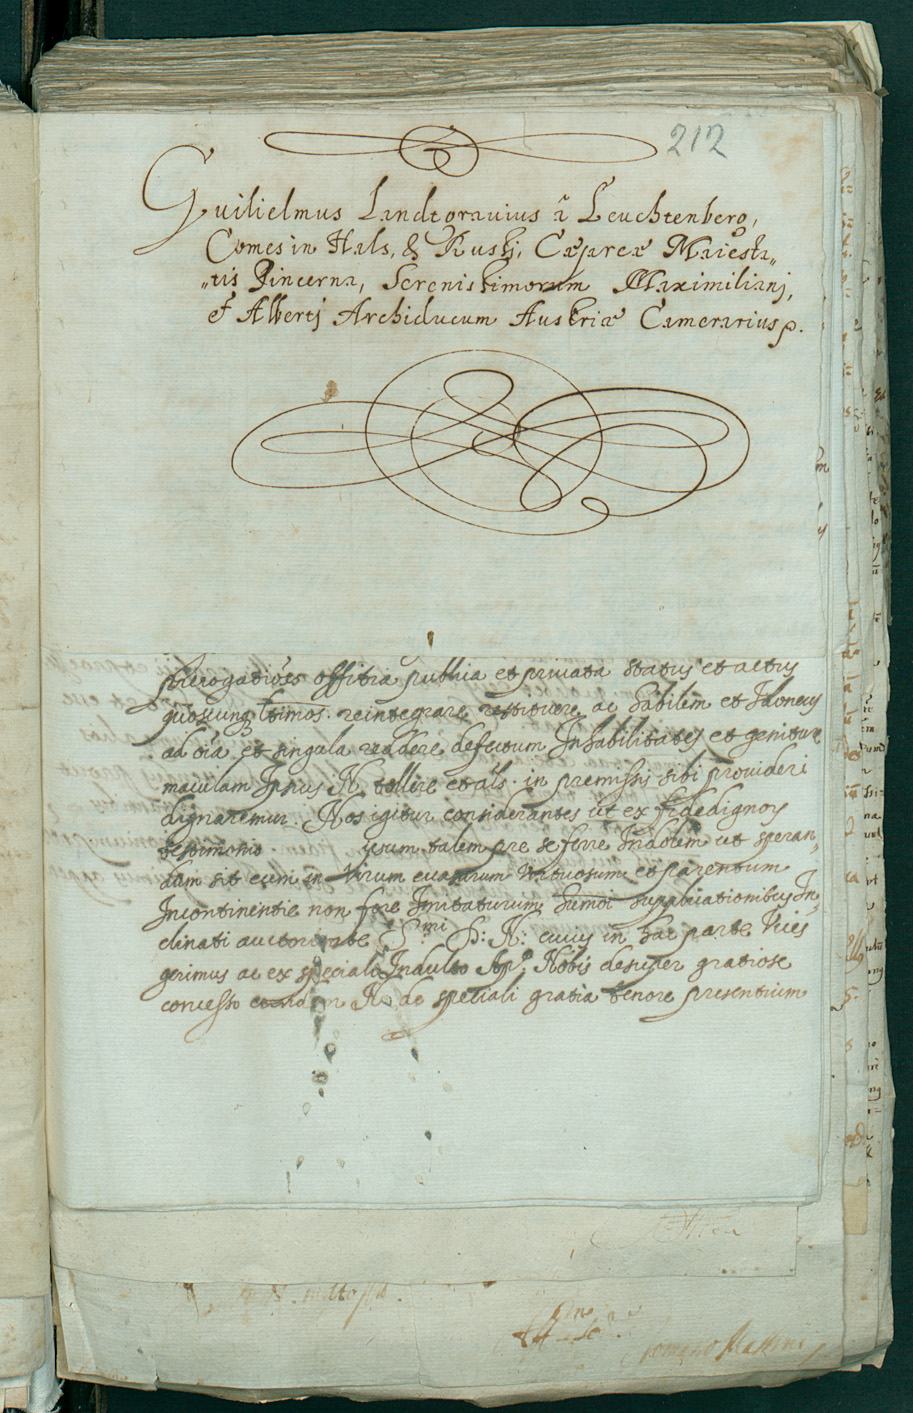 212
Guilielmus Landtgrauius à Leuchtenberg,
Comes in Hals, & Rusti, Cæsareæ Maiesta„
„tis Pincerna, Serenissimorum Maximiliani,
et Alberti Archiducum Austriæ Camerarius p.
prerogatiões offitia publica et priuata status et actus
quoscunq ltimos reintegrare restituere ac habilem et Idoneu
ad oĩa et singula reddere defectum Inhabilitatis et geniture
maculam Ipsius N. tollere et als in premissis sibi prouideri
dignaremur. Nos igitur considerantes ut ex fidedignor
testimonio ipsum talem pre se ferre Indolem ut speran„
dum sit eum in virum euasurum virtuosum et parentum
Incontinentie non fore Imitaturum humoi supplicationibus In„
clinati auctoritate Smi D: N: cuius in hac parte vices
gerimus ac ex speciali Indulto Ap. Nobis desuper gratiose
concesso eundem N. de speciali gratia tenore presentium